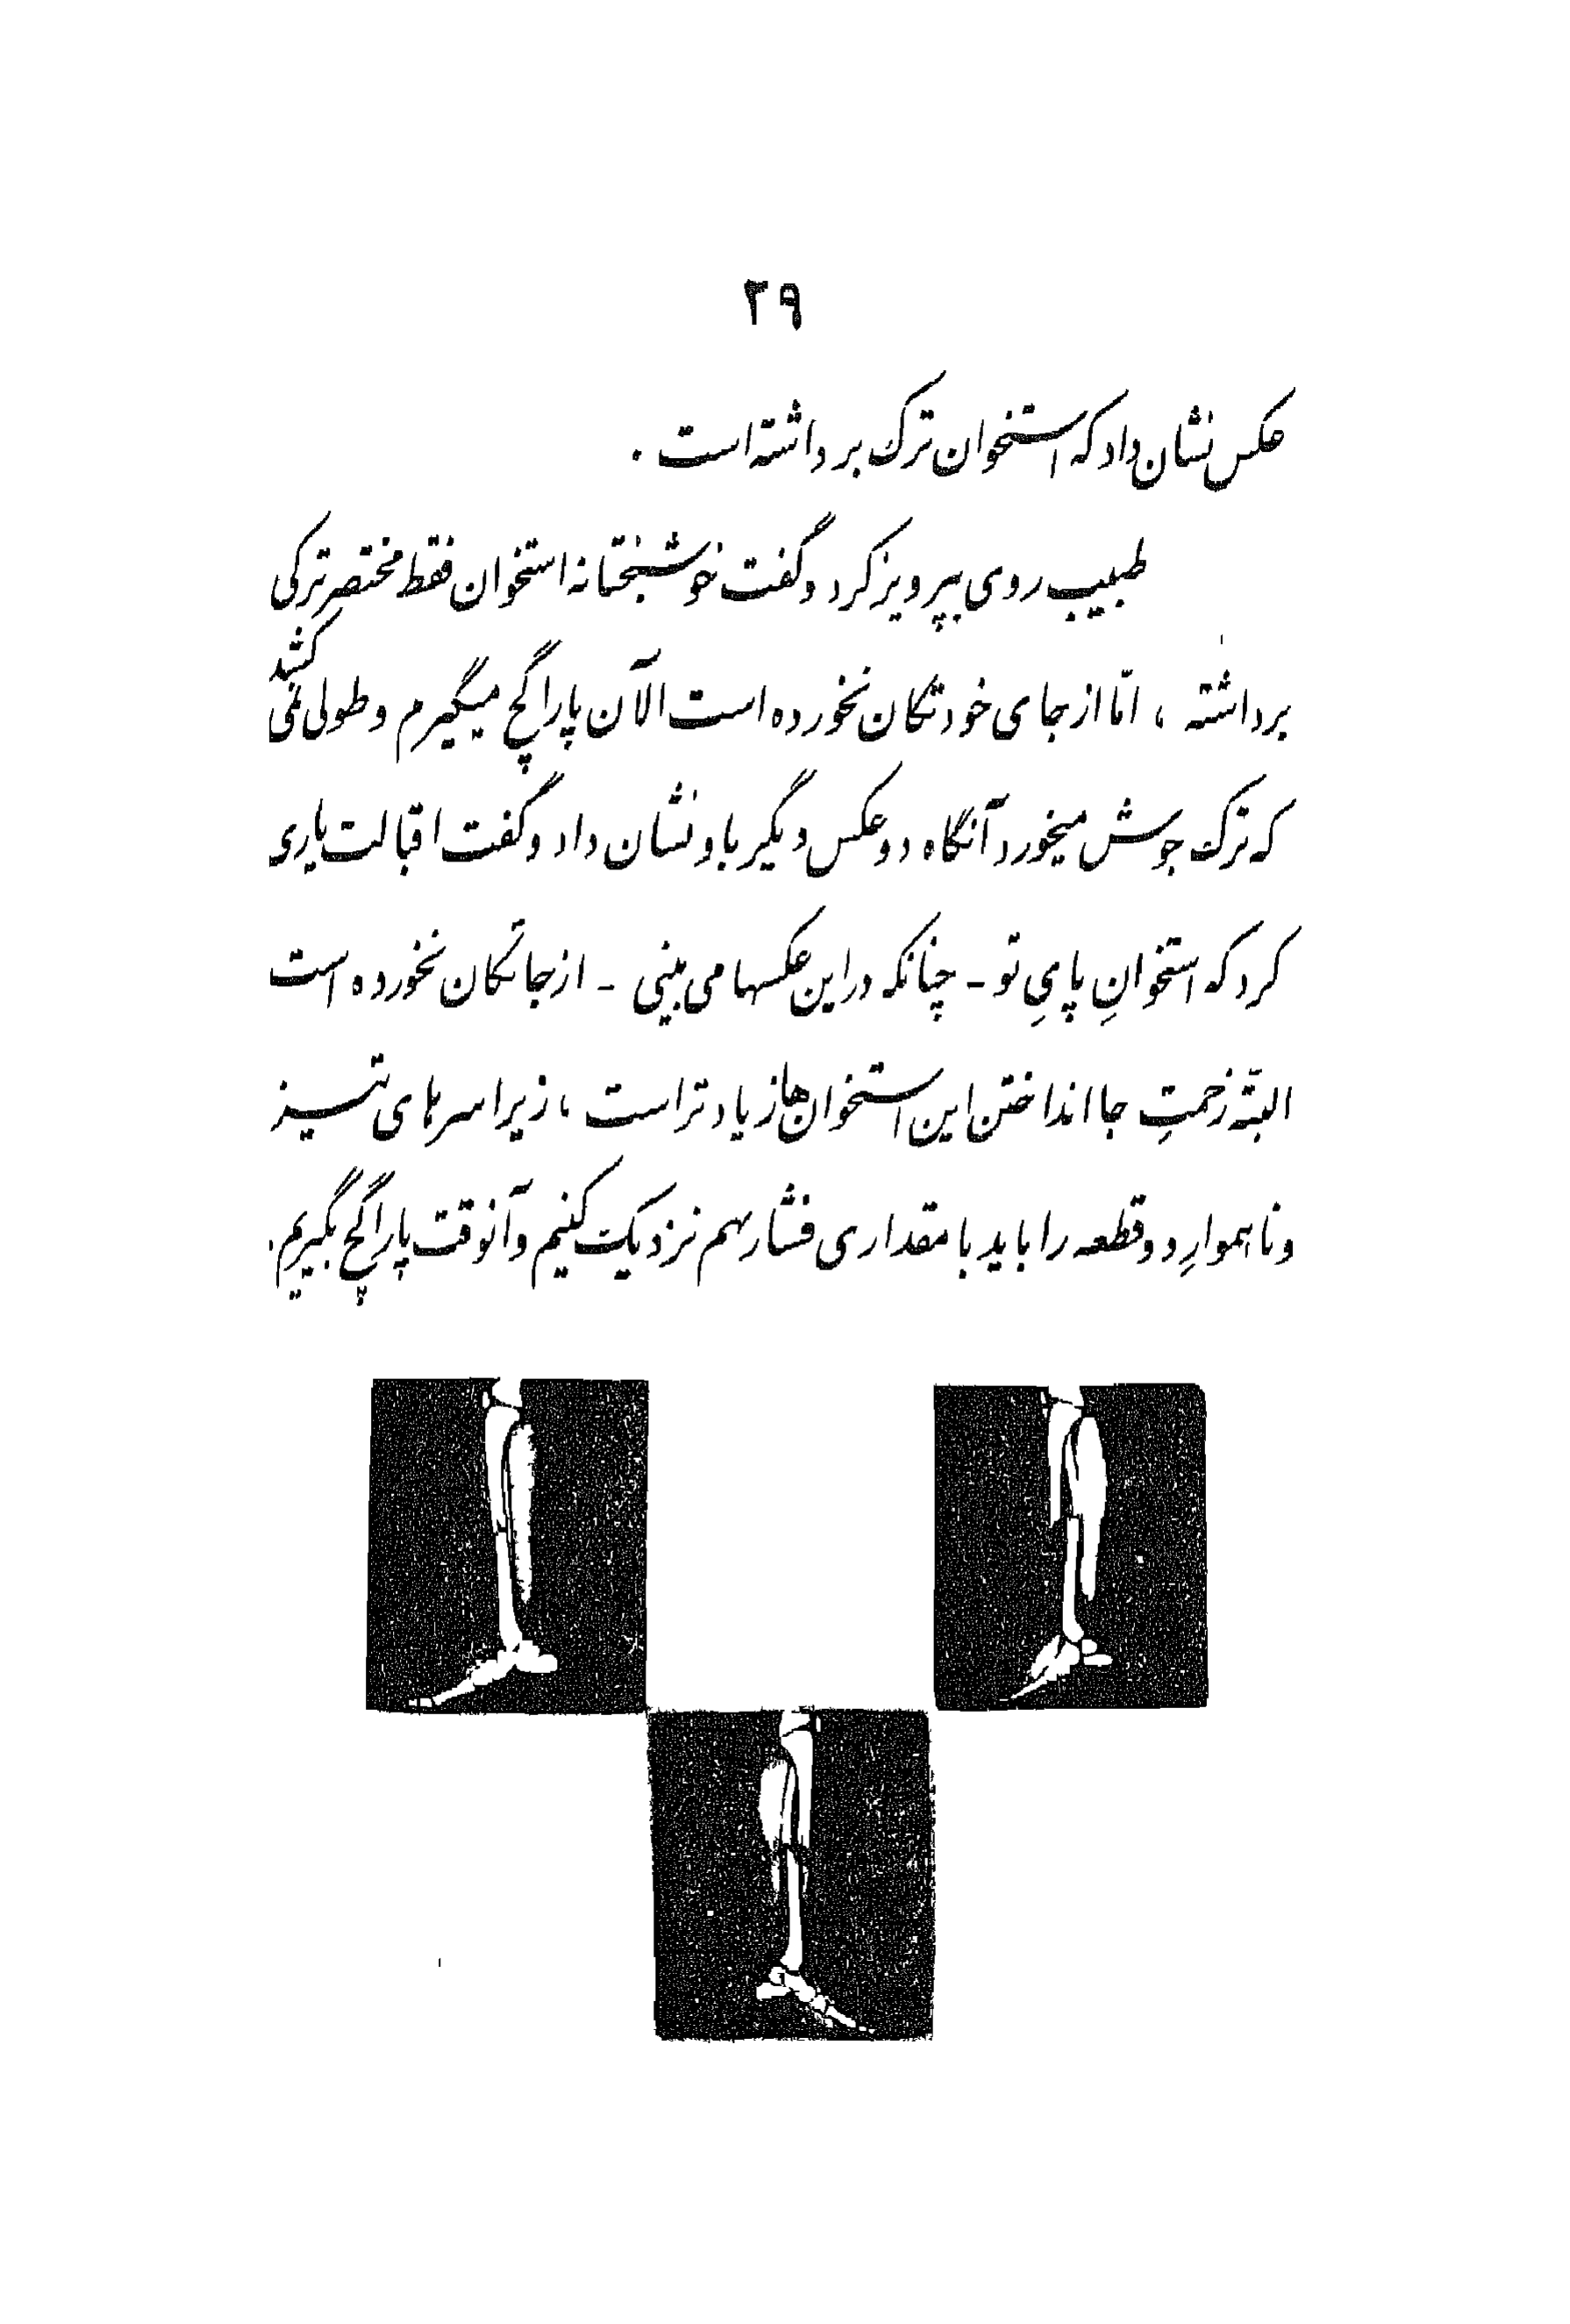 ۲۹
عکس نشان داد که استخوان ترک برداشته است .
طبیب روی بپرویز کرد و گفت خوشبختانه استخوان فقط مختصر ترکی
برداشته ، امّا از جای خود تکان نخورده است الآن پا را گچ میگیرم و طولی نمی کشد
که ترک جوش میخورد آنگاه دو عکس دیگر باو نشان داد و گفت اقبالت یاری
کرد که استخوانِ پایِ تو - چنانکه در این عکسها می بینی - از جا تکان نخورده است
البتّه زحمتِ جا انداختن این استخوان ها زیادتر است ، زیرا سرهای تیز
و ناهموارِ دو قطعه را باید با مقداری فشار بهم نزدیک کنیم و آنوقت پا را گچ بگیریم .